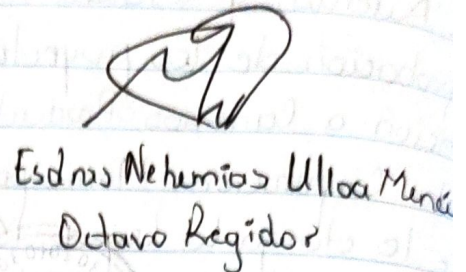 Esdras Nehemias Ulloa
Octavo Regidor